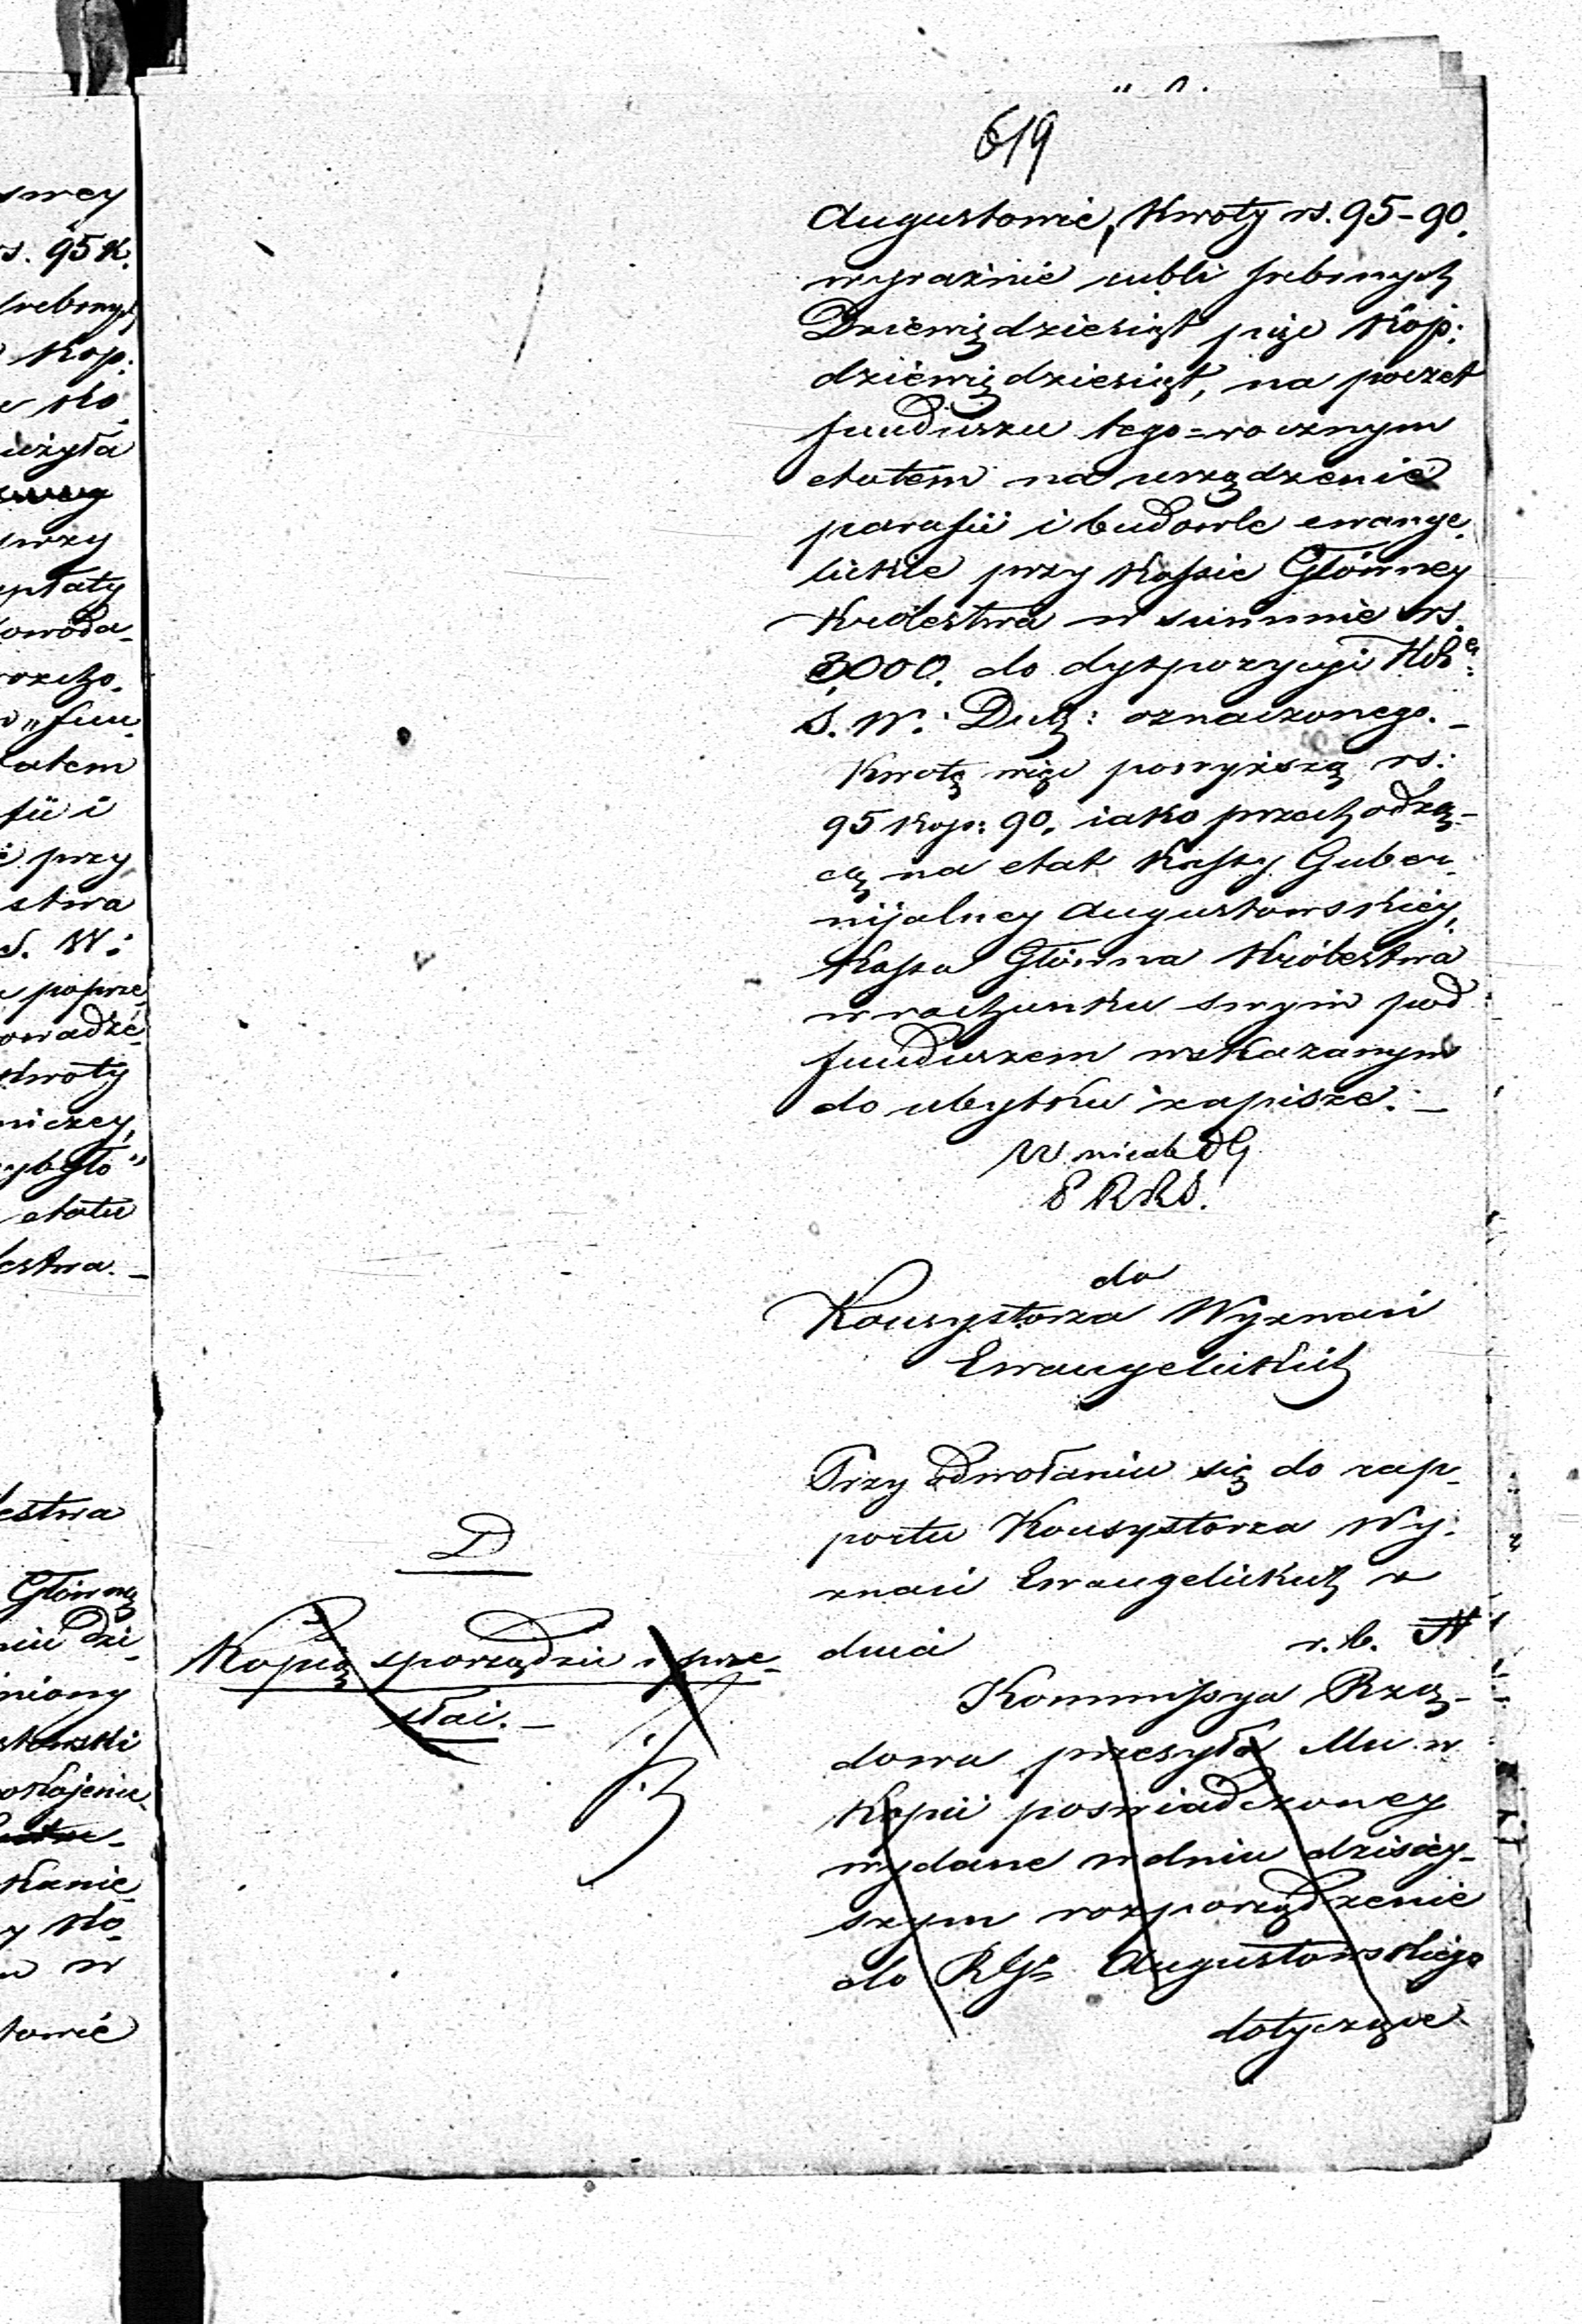 619
Augustowie, Kwoty rs. 95-90.
wyraźnie rubli srebrnych
Dziewiędziesiąt pięc Kop:
dziewiędziesiąt, na poczet
funduszu tego=rocznym
etatem na urządzenie
parafii i budowle ewange-
lickie przy Kassie Główney
Królestwa w summie rs.
3,000. do dyspozycyi
S. W. Duch: oznaczonego. _
Kwotę więc powyższą rs:
95 Kop: 90. iako przechodzą-
cą na etat Kassy Guber-
nijalney Augustowskiéy,
Kassa Główna Królestwa
w rachunku swym pod
funduszem wskazanym
do ubytku zapisze. _
P R R S.
do
Konsystorza Wyznań
Ewangelickich
Przy odwołaniu się do rap-
portu Konsystorza Wy-
znań Ewangelickich z
dnia r. b. N
Kommissya Rzą-
dowa przesyła Mu w
Kopii poświadczoney
wydane w dniu dzisiey-
szym rozporządzenie
do RGo Augustowskiego
dotyczące
D
Kopią sporządzić i prze-
słać. _
swey
rs. 95 K.
srebrnych
Kop:
użyła
przy
wpłaty
fun-
etatem
fii i
przy
stwa
S. W:
poprze-
owadzé-
Kwoty
niczey,
etatu
lestwa. _
lestwa
Główną
niu dzi-
niony
stowski
okojeniu
Kanie-
w
towie